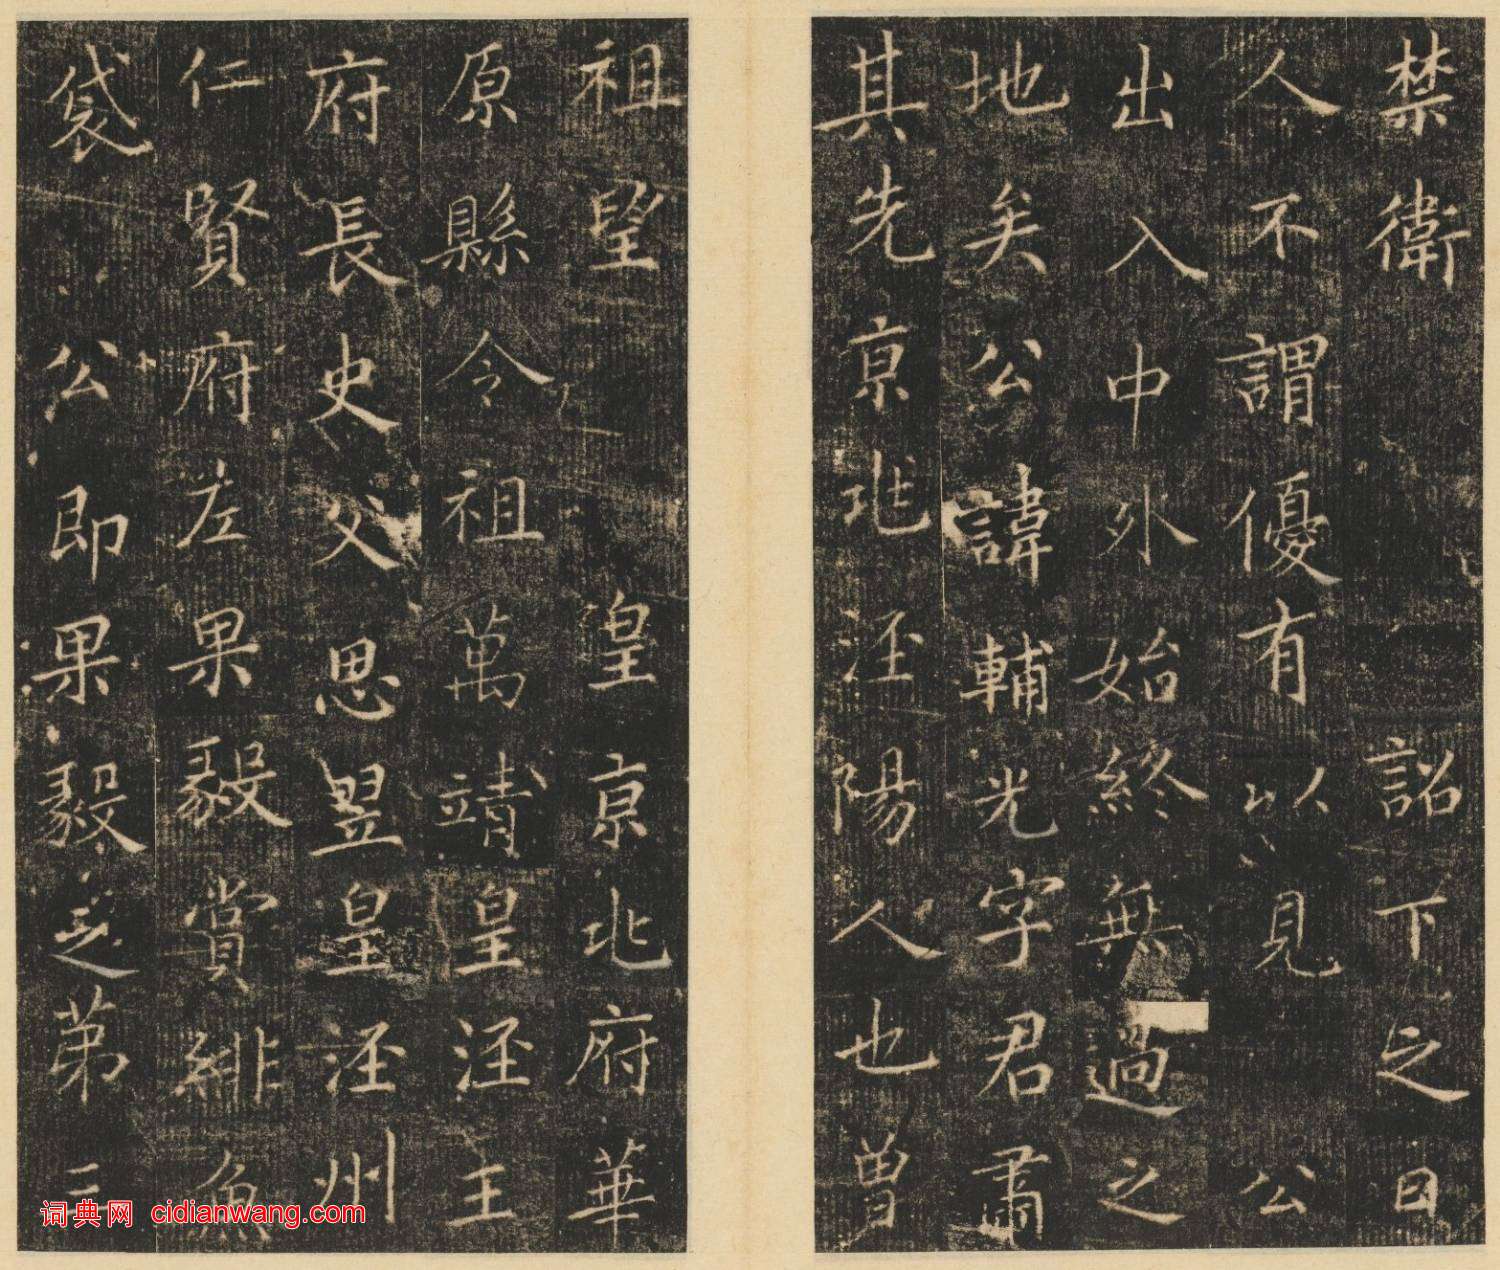 禁衛詔下之日
人不謂優有以見公
出入中外始終無過之
地矣公諱輔光字君肅
其先京兆涇陽人也曽
祖望皇京兆府華
原縣令祖萬靖皇涇王
府長史父思㫤皇涇州
仁賢府左果毅賞緋魚
袋公即果毅之苐二
词典网 cidianwang.com